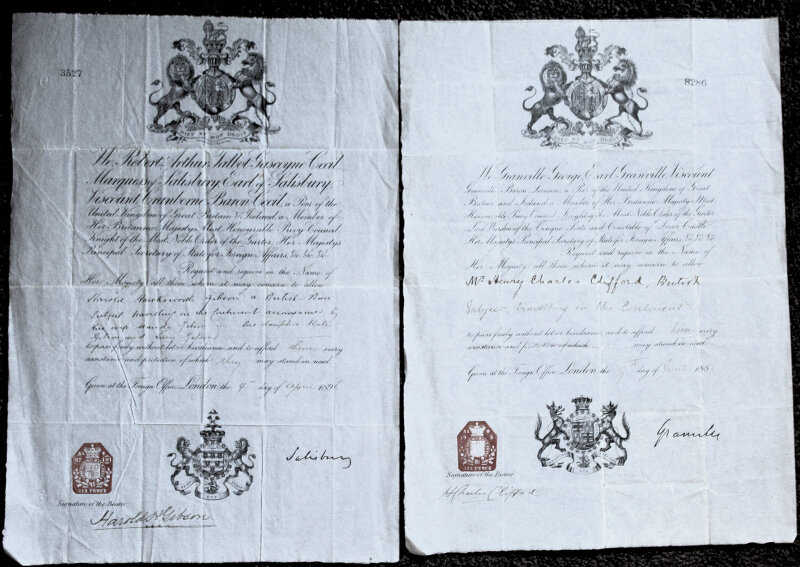 3527
DIEU ET MON DROIT
We Robert Arthur Talbot Gascoyne Cecil
Marquess of Salisbury Earl of Salisbury
Viscount Cranborne Baron Cecil, a Peer of the
United Kingdom of Great Britain & Ireland, a Member of
Her Britannic Majesty's Most Honourable Privy Council
Knight of the Most Noble Order of the Garter, Her Majesty's
Principal Secretary of State for Foreign Affairs &c. &c. &c.
Request and require in the Name of
Her Majesty, all those whom it may concern to allow
Harold Hawksworth Gibson a British Born
Subject travelling on the Continent accompanied by
his wife
Gibson
to pass freely without let or hindrance, and to afford them every
assistance and protection of which they may stand in need.
Given at the Foreign Office, London, the 9th day of April 1896
Salisbury
SIX PENCE
Signature of the Bearer.
Harold H Gibson
8286
DIEU ET MON DROIT
We Granville George, Earl Granville, Viscount
Granville, Baron Leveson, a Peer of the United Kingdom of Great
Britain and Ireland, a Member of Her Britannic Majesty's Most
Honourable Privy Council, Knight of the Most Noble Order of the Garter
Lord Warden of the Cinque Ports and Constable of Dover Castle
Her Majesty's Principal Secretary of State for Foreign Affairs &c. &c. &c.
Request and require in the Name of
Her Majesty, all those whom it may concern to allow
Mr Henry Charles Clifford, British
Subject, travelling on the Continent
to pass freely without let or hindrance, and to afford him every
assistance and protection of which may stand in need.
Given at the Foreign Office, London, the day of 188
Granville
SIX PENCE
Signature of the Bearer.
H Charles Clifford